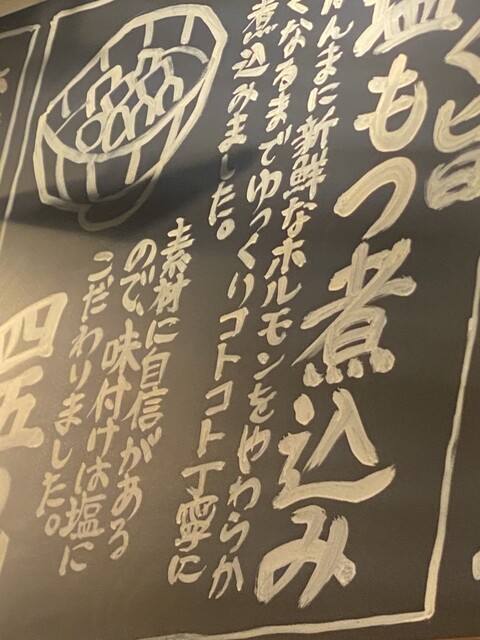 く旨
塩もつ煮込み
んまに新鮮なホルモンをやわらか
くなるまでゆっくりコトコト丁寧に
煮込みました。
素材に自信がある
ので、味付けは塩に
こだわりました。
四五